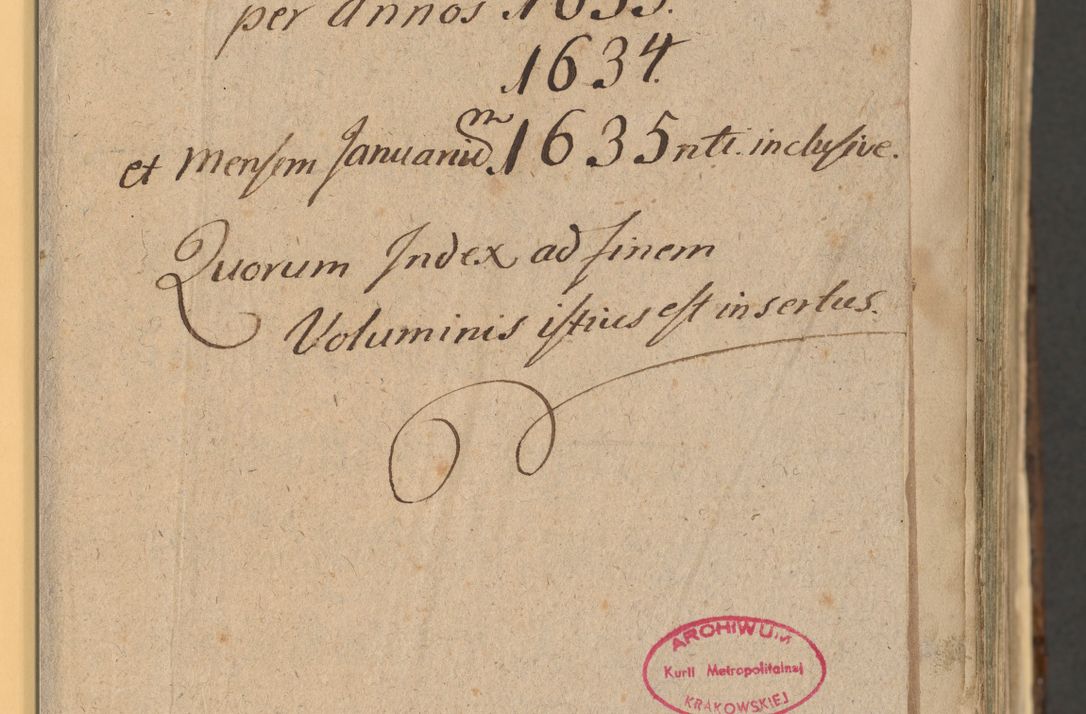 per Annos 1633.
1634.
et Mensem Januariũm 1635 nti. inclusive.
Quorum Index ad finem
Voluminis istius est insertus.
ARCHIWUM
Kurii Metropolitalnej
KRAKOWSKIEJ